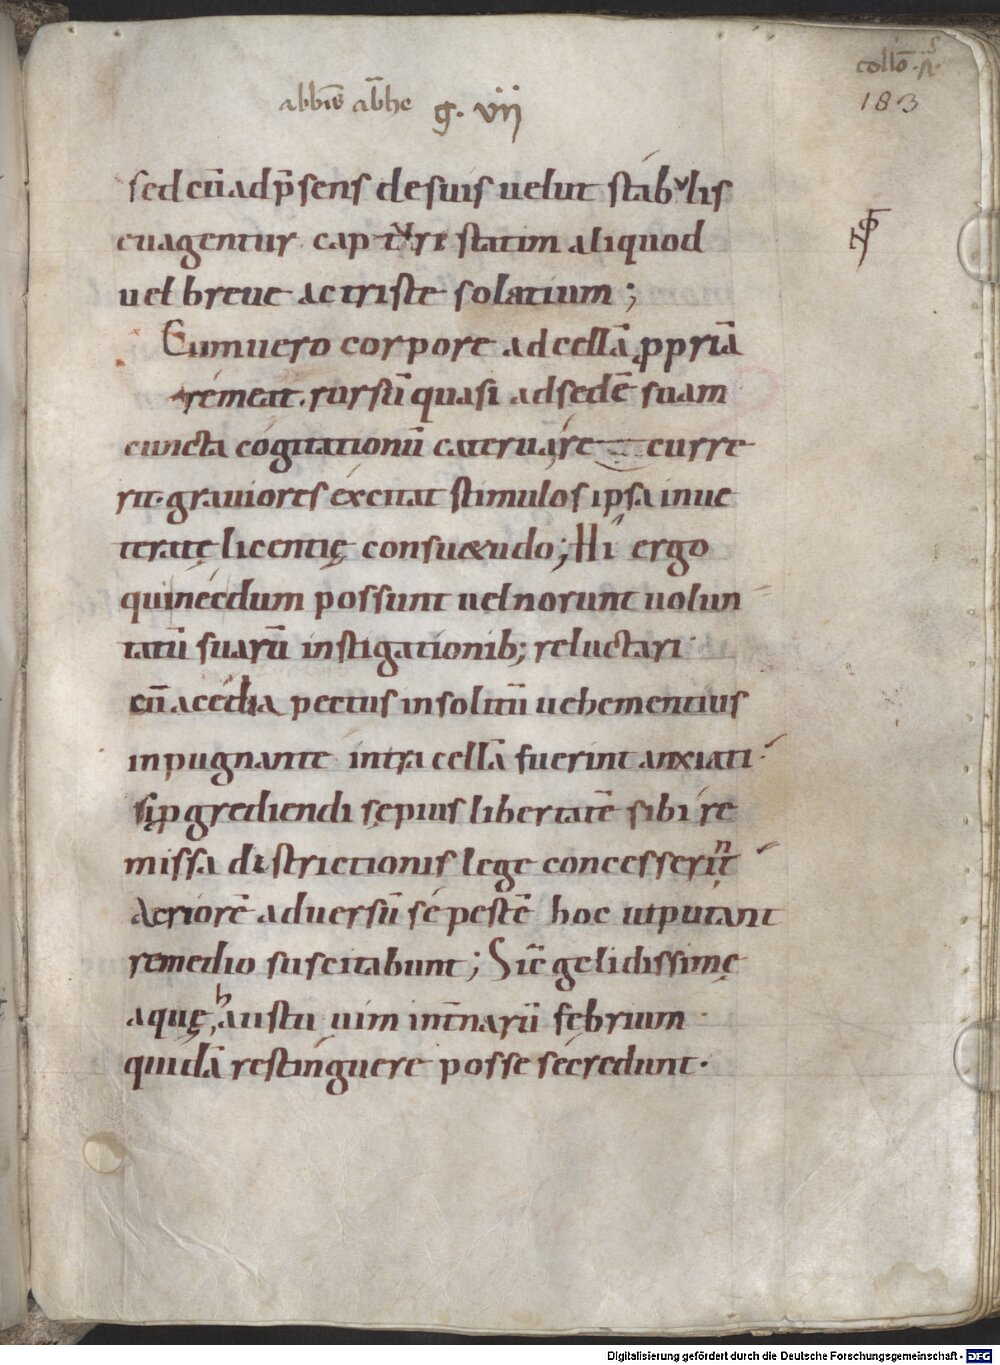 collō .ii.s
183
abbīs ābhe g. vii
sed cū ad p̄sens de suis uelut stabulis
euagentur captʹri statim aliquod
uel breue ac triste solatium ;
Cum uero corpore ad cellā ꝓpriā
remeat. rursū quasi ad sedē suam
cuncta cogitationū caterua re curre
rit. grauiores excitat stimulos ipsa inue
teratę licentię consuetudo; Hi ergo
qui necdum possunt uel norunt uolun
tatū suarū instigationib; reluctari
cū acedia pectus insolitū uehementius
inpugnante intra cellā fuerint anxiati
si ꝓgrediendi sępius libertatē sibi re
missa districtionis lege concesserint
Acriorē aduersū se pestē hoc ut putant
remedio suscitabunt ; Sic̄ gelidissimę
aquę haustu uim int̄narū febrium
quidā restinguere posse se credunt.
Digitalisierung gefördert durch die Deutsche Forschungsgemeinschaft - DFG